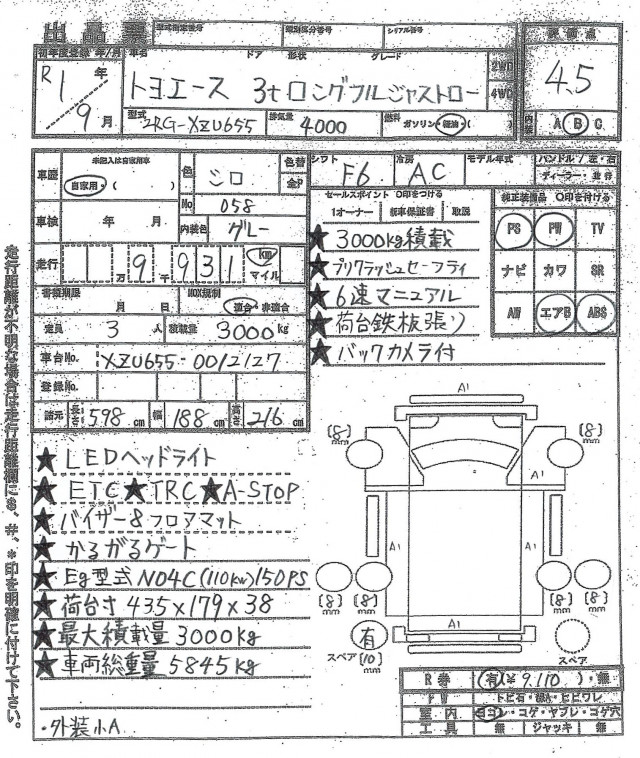 出品票 型式指定番号 類別区分番号 シリアル番号 評価点
初年度登録 年/月 車名 ドア 形状 グレード
R1年 9月 トヨエース 3tロングフルジャストロー 2WD 4WD 4.5
型式 2RG-XZU655 排気量 4000 燃料 ガソリン・軽油・( ) 内装 A B C
車歴 未記入は自家用車 自家用・( ) 色 シロ 色替 金P
No 058
車検 年 月 内装色 グレー
走行 万 9 千 931 km マイル
書類期限 月 日 NOX規制 適合・非適合
定員 3人 積載量 3000kg
車台No. XZU655-0012127
登録No.
諸元 長さ 598cm 幅 188cm 高さ 216cm
シフト F6 冷房 AC モデル年式 ハンドル/左・右
ディーラー・並行
セールスポイント ○印をつける
1オーナー 新車保証書 取説
★3000kg積載
★プリクラッシュセーフティ
★6速マニュアル
★荷台鉄板張り
★バックカメラ付
純正装備品 ○印を付ける
PS PW TV
ナビ カワ SR
AW エアB ABS
★LEDヘッドライト
★ETC★TRC★A-STOP
★バイザー&フロアマット
★かるがるゲート
★Eg型式 N04C(110kw)150PS
★荷台寸 435×179×38
★最大積載量 3000kg
★車両総重量 5845kg
・外装小A
A1
(8)mm (8)mm
A1 A1 A1
(8)mm (8)mm (8)mm (8)mm
A1
有 スペア(10)mm スペア
R券 (有)(¥9.110)・無
FW トビ石・線A・ヒビワレ
室内 ヨゴレ・コゲ・ヤブレ・コゲ穴
工具 無 ジャッキ 無
走行距離が不明な場合は走行距離欄に$、#、*印を明確に付けて下さい。